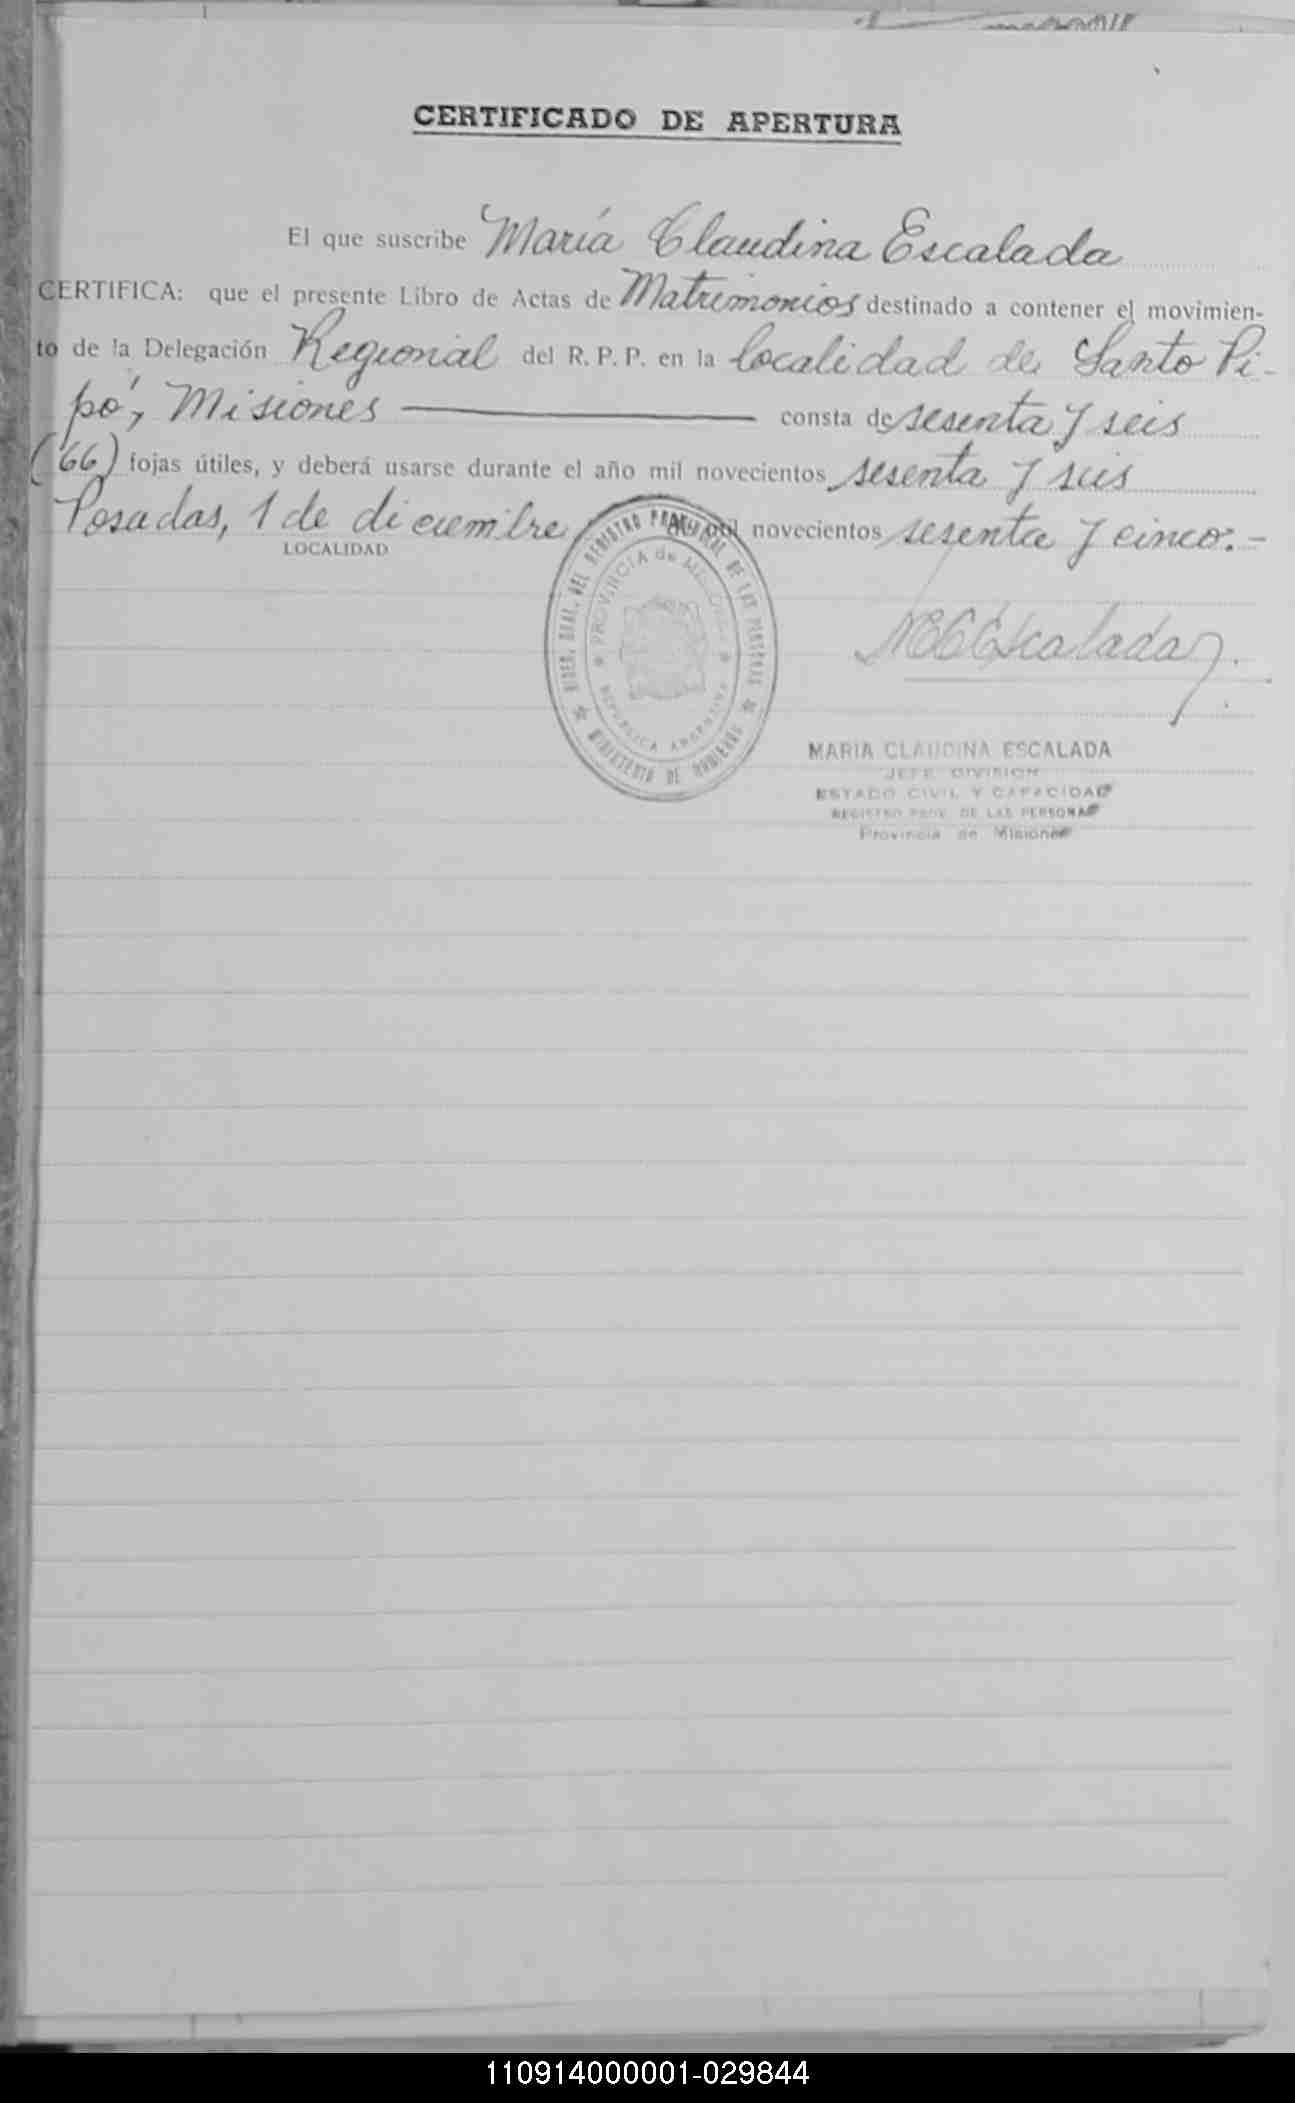 CERTIFICADO DE APERTURA
El que suscribe María Claudina Escalada
CERTIFICA: que el presente Libro de Actas de Matrimonios destinado a contener el movimien-
to de la Delegación Regional del R. P. P. en la localidad de Santo Pi-
pó, Misiones consta de sesenta y seis
(66) fojas útiles, y deberá usarse durante el año mil novecientos sesenta y seis
Posadas, 1 de diciembre de mil novecientos sesenta y cinco.-
LOCALIDAD
DIREC. GRAL. DEL REGISTRO PROVINCIAL DE LAS PERSONAS
PROVINCIA de MISIONES
REPUBLICA ARGENTINA
MINISTERIO DE GOBIERNO
MCEscalada
MARIA CLAUDINA ESCALADA
JEFE DIVISION
ESTADO CIVIL Y CAPACIDAD
REGISTRO PROV. DE LAS PERSONAS
Provincia de Misiones
110914000001-029844